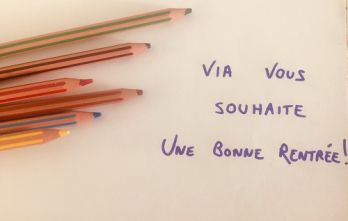 VIA VOUS
SOUHAITE
UNE BONNE RENTRÉE!